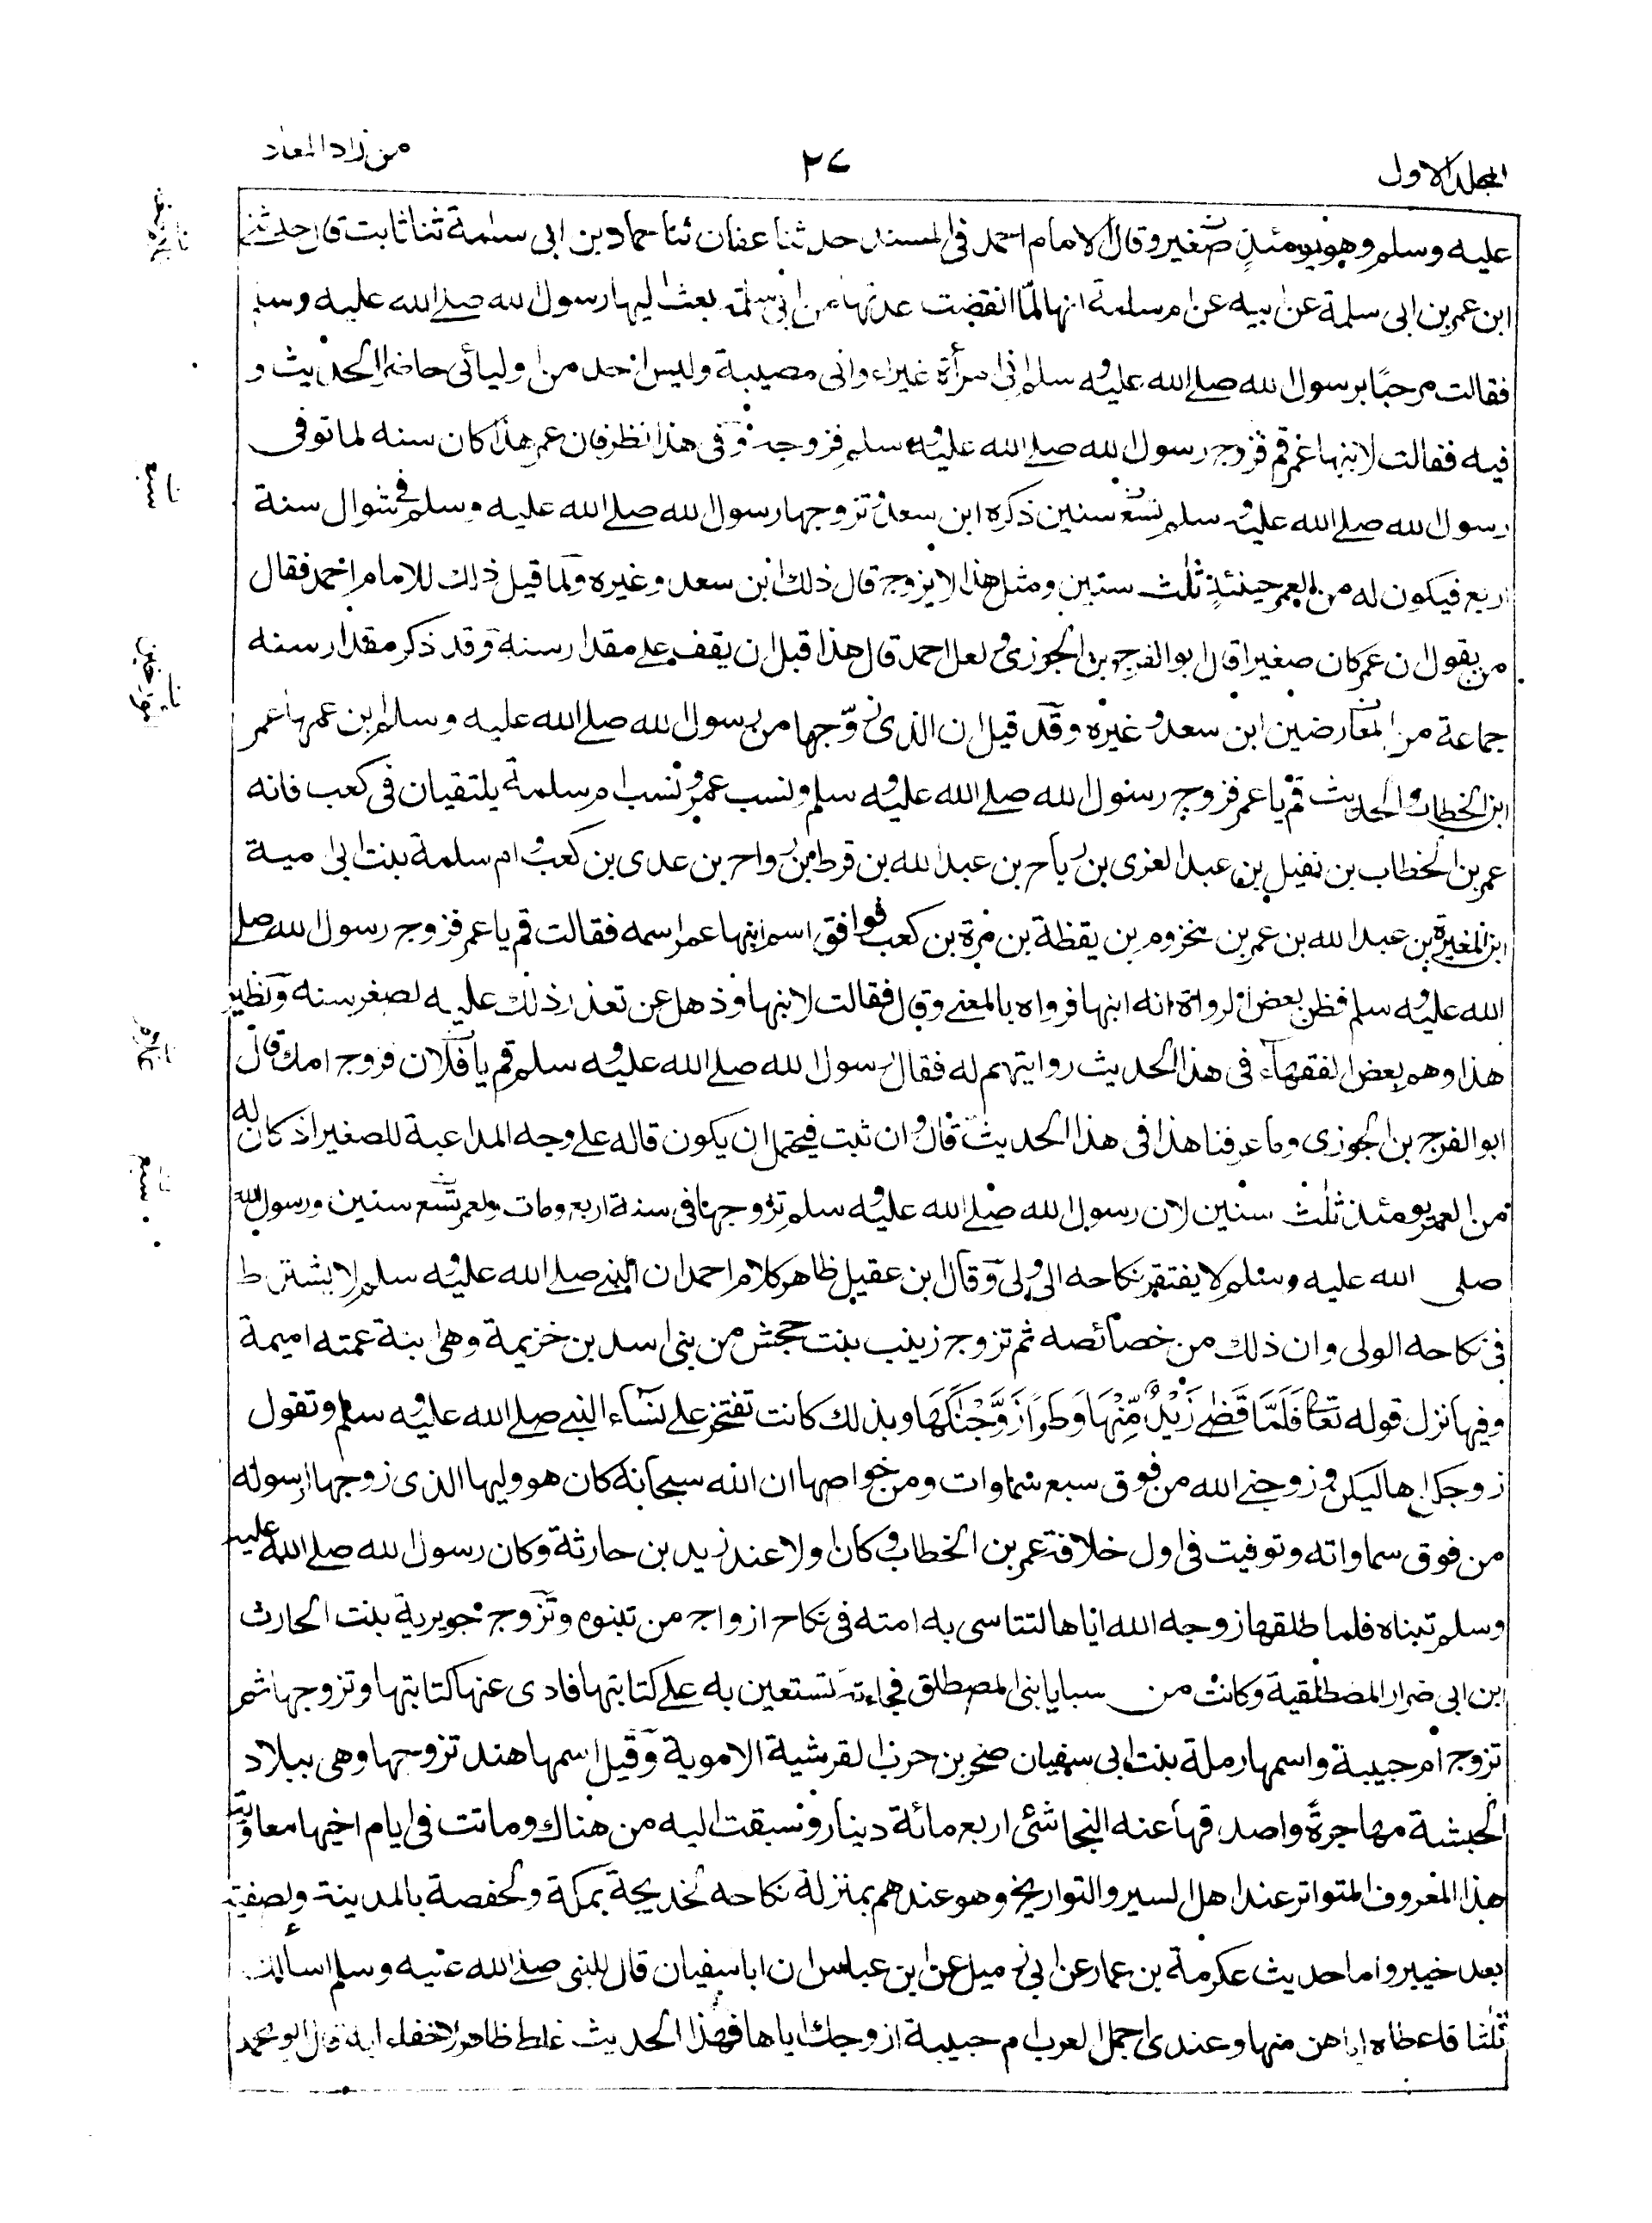 المجلد الاول
٢٧
من زاد المعاد
عليه وسلم وهو يومئذٍ صغير وقال الامام احمد فى المسند حدثنا عفان ثنا حماد بن ابى سلمة ثنا ثابت قال حدثنى
ابن عمر بن ابى سلمة عن ابيه عن ام سلمة انها لمّا انقضت عدتها من ابى سلمة بعث اليها رسول الله صلے الله عليه وسلم
فقالت مرحبًا برسول الله صلے الله عليه وسلم انى امرأة غيراء وانى مصيبة وليس احد من اوليائى حاضر الحديث و
فيه فقالت لابنها عمر قم فزوج رسول الله صلے الله عليه وسلم فزوجه وفى هذا نظر فان عمر هذا كان سنه لما توفى
رسول الله صلے الله عليه وسلم تسع سنين ذكره ابن سعد وتزوجها رسول الله صلے الله عليه وسلم فى شوال سنة
اربع فيكون له من العمر حينئذٍ ثلٰث سنين ومثل هذا لا يزوج قال ذلك ابن سعد وغيره ولما قيل ذلك للامام احمد فقال
من يقول ان عمر كان صغيرا قال ابو الفرج بن الجوزى ولعل احمد قال هذا قبل ان يقف علے مقدار سنه وقد ذكر مقدار سنه
جماعة من المعارضين ابن سعد وغيره وقد قيل ان الذى زوّجها من رسول الله صلے الله عليه وسلم ابن عمها عمر
ابن الخطاب والحديث قم يا عمر فزوج رسول الله صلے الله عليه وسلم ونسب عمر ونسب ام سلمة يلتقيان فى كعب فانه
عمر بن الخطاب بن نفيل بن عبد العزى بن رياح بن عبد الله بن قرط بن رواح بن عدى بن كعب وام سلمة بنت ابى امية
ابن المغيرة بن عبد الله بن عمر بن مخزوم بن يقظة بن مرة بن كعب فوافق اسم ابنها عمر اسمه فقالت قم يا عمر فزوج رسول الله صلے
الله عليه وسلم فظن بعض الرواة انه ابنها فرواه بالمعنے وقال فقالت لابنها وذهل عن تعذر ذلك عليه لصغر سنه ونظير
هذا وهم بعض الفقهاء فى هذا الحديث روايتهم له فقال رسول الله صلے الله عليه وسلم قم يا فلان فزوج امك قال
ابو الفرج بن الجوزى وما عرفنا هذا فى هذا الحديث قال وان ثبت فيحتمل ان يكون قاله على وجه المداعبة للصغير اذ كان له
من العمر يومئذ ثلٰث سنين لان رسول الله صلے الله عليه وسلم تزوجها فى سنة اربع ومات ولعمر تسع سنين ورسول الله
صلى الله عليه وسلم لا يفتقر نكاحه الى ولى وقال ابن عقيل ظاهر كلام احمد ان النبى صلے الله عليه وسلم لا يشترط
فى نكاحه الولى وان ذلك من خصائصه ثم تزوج زينب بنت جحش من بنى اسد بن خزيمة وهى ابنة عمته اميمة
وفيها نزل قوله تعالٰى فَلَمَّا قَضٰے زَيْدٌ مِّنْهَا وَطَرًا زَوَّجْنٰكَهَا وبذلك كانت تفتخر على نساء النبى صلے الله عليه وسلم وتقول
زوجكن اهاليكن وزوجنے الله من فوق سبع سماوات ومن خواصها ان الله سبحانه كان هو وليها الذى زوجها لرسوله
من فوق سماواته وتوفيت فى اول خلافة عمر بن الخطاب وكان اولا عند زيد بن حارثة وكان رسول الله صلے الله عليه
وسلم تبناه فلما طلقها زوجه الله اياها لتتاسى به امته فى نكاح ازواج من تبنوه وتزوج جويرية بنت الحارث
ابن ابى ضرار المصطلقية وكانت من سبايا بنى المصطلق فجاءته تستعين به علے كتابتها فادى عنها كتابتها وتزوجها ثم
تزوج ام حبيبة واسمها رملة بنت ابى سفيان صخر بن حرب القرشية الاموية وقيل اسمها هند تزوجها وهى ببلاد
الحبشة مهاجرةً واصدقها عنه النجاشى اربع مائة دينار وسبقت اليه من هناك وماتت فى ايام اخيها معاوية
هذا المعروف المتواتر عند اهل السير والتواريخ وهو عندهم بمنزلة نكاحه لخديجة بمكة ولحفصة بالمدينة ولصفية
بعد خيبر واما حديث عكرمة بن عمار عن ابى زميل عن ابن عباس ان ابا سفيان قال للنبى صلے الله عليه وسلم اسألك
ثلٰثا فاعطاه اياهن منها وعندى اجمل العرب ام حبيبة ازوجك اياها فهذا الحديث غلط ظاهر لا خفاء به قال ابو محمد
سبع
سبع